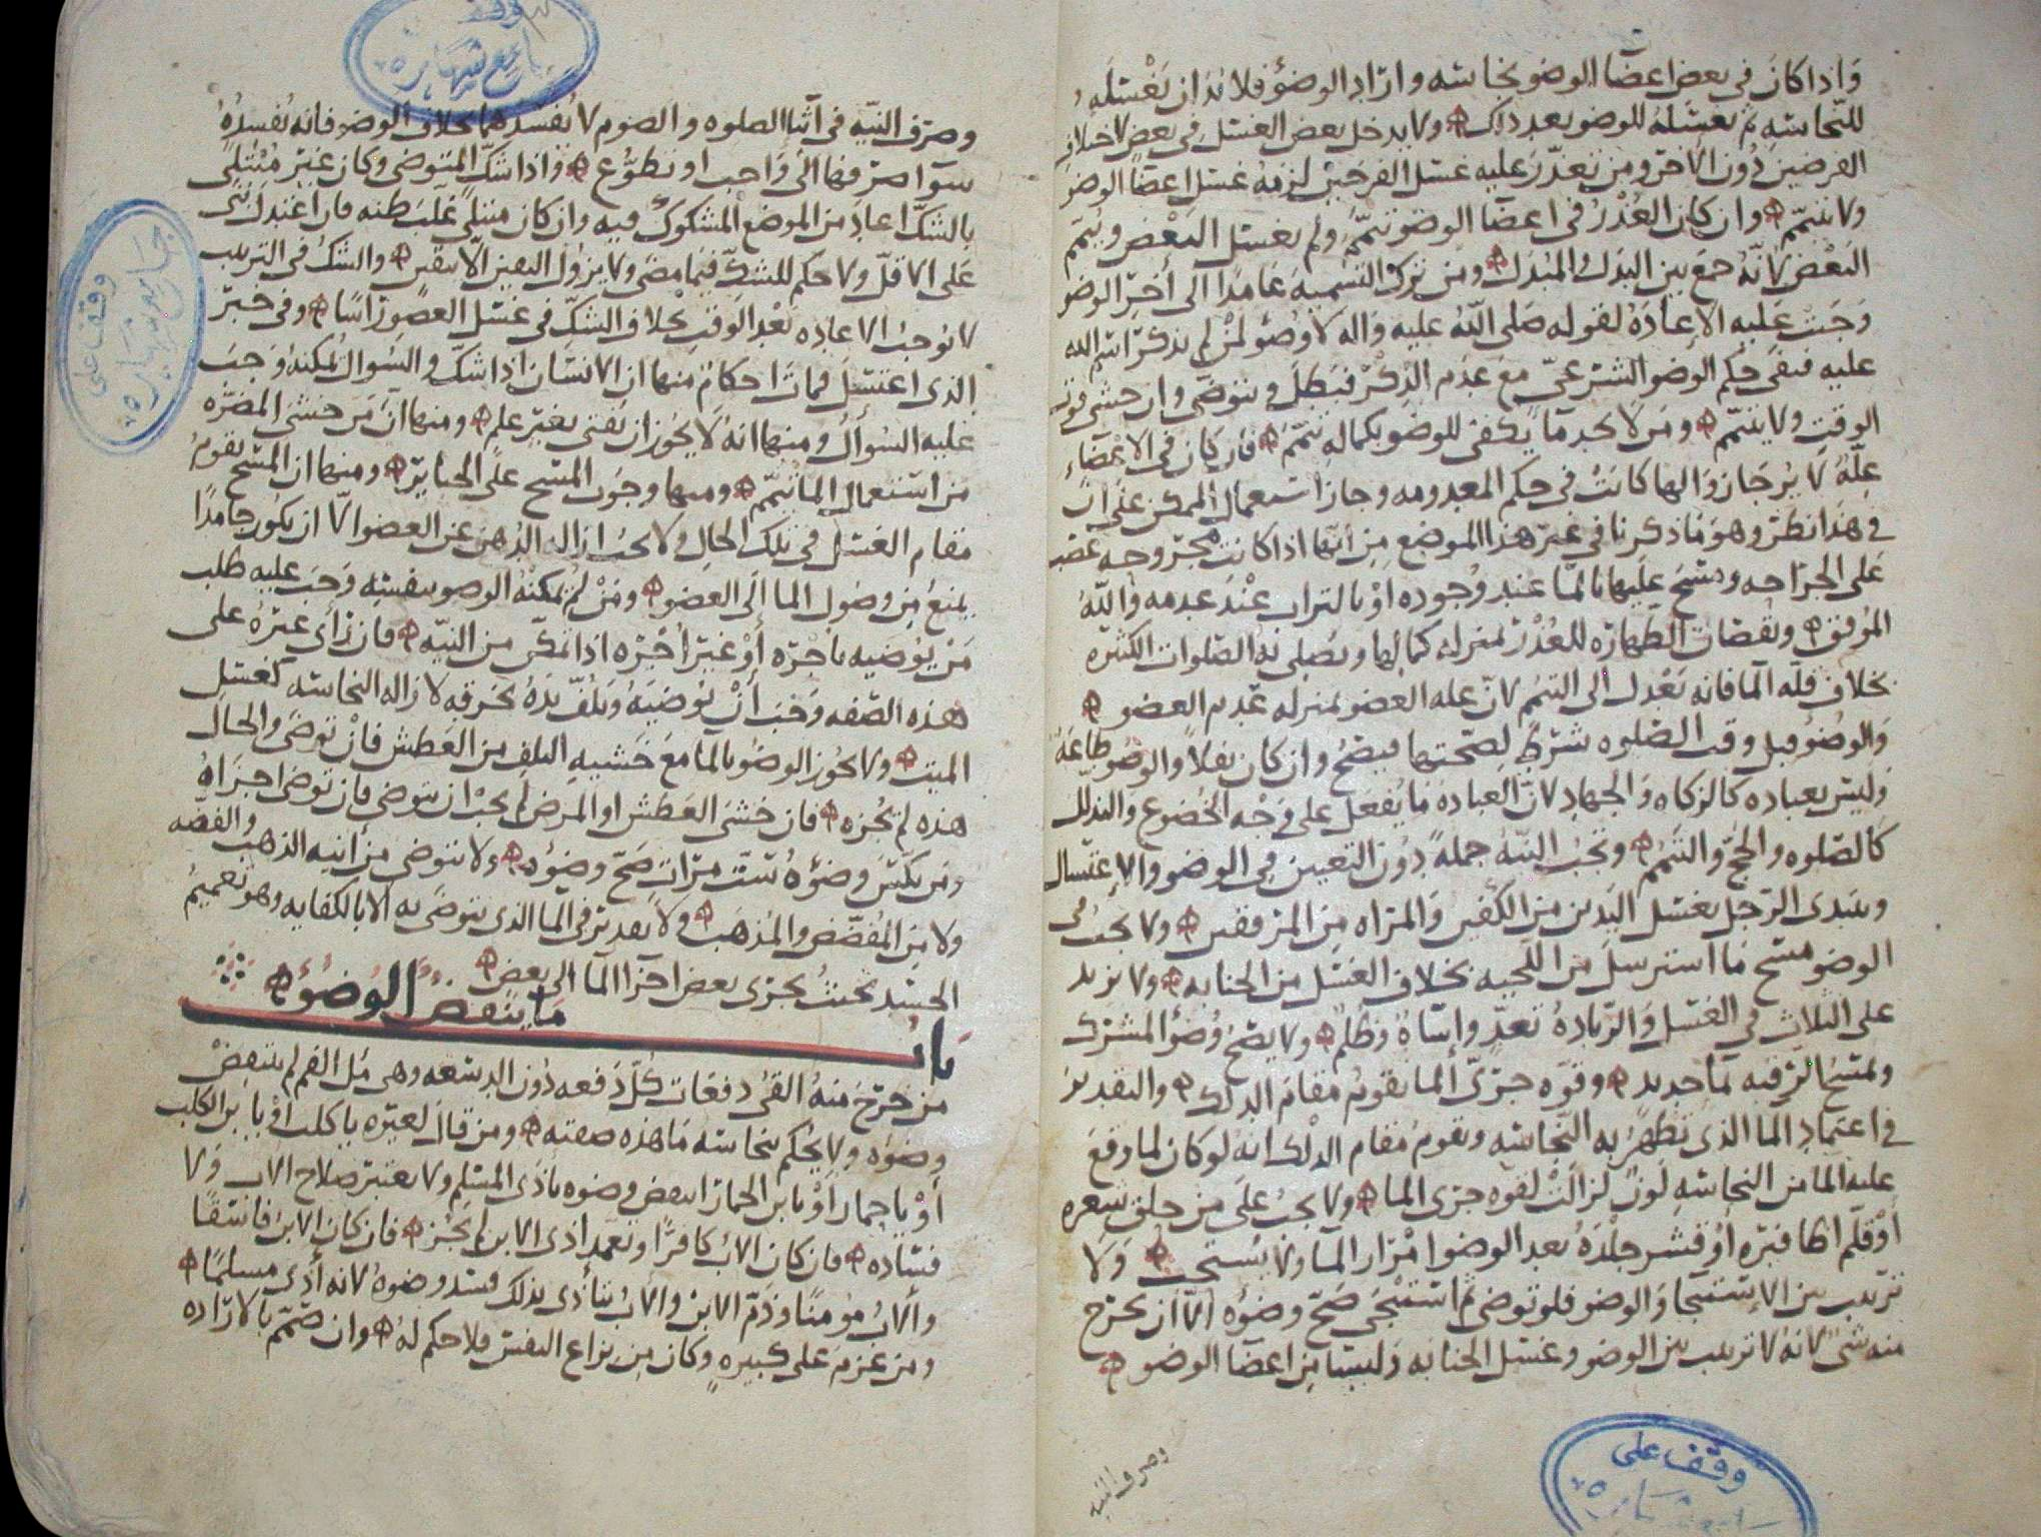 واذا كان في بعض اعضا الوضو نجاسه واراد الوضوء فلا بد ان يغسله
للنجاسه ثم يغسله للوضو بعد ذلك ولا يدخل بعض الغسل في بعض لاختلاف
الفرضين دون الاخر ومن تعذر عليه غسل الفرجين لزمه غسل اعضا الوضو
ولا يتيمم وان كان العذر في اعضا الوضو تيمم ولم يغسل البعض وييمم
البعض لانه جمع بين البدل والمبدل ومن ترك التسميه عامدا الى اخر الوضو
وجبت عليه الاعاده لقوله صلى الله عليه واله لا وضو لمن لم يذكر اسم الله
عليه فنفى حكم الوضو الشرعي مع عدم الذكر فبطل ويتوضى وان خشي فوت
الوقت ولا يتيمم ومن لا يجد ما يكفي للوضو بكماله تيمم فان كان في الاعضاء
عله لا يرجا زوالها كانت في حكم المعدومه وجاز استعمال الممكن على ان
في هذا نظر وهو ما ذكرنا في غير هذا الموضع من انها اذا كانت مجروحه عصب
على الجراحه ومسح عليها بالما عند وجوده او بالتراب عند عدمه والله
الموفق ونقصان الطهاره للعذر بمنزله كمالها ويصلى به الصلوات الكثيره
بخلاف قله الما فانه يعدل الى التيمم لان عله العضو بمنزله عدم العضو
والوضو قبل وقت الصلوه شرط لصحتها فيصح وان كان نفلا والوضو طاعه
وليس بعباده كالزكاه والجهاد لان العباده ما يفعل على وجه الخضوع والتذلل
كالصلوه والحج والتيمم وتجب النيه جمله دون التعيين في الوضو والاغتسال
ويبتدى الرجل بغسل اليدين من الكفين والمراه من المرفقين ولا يجب في
الوضو مسح ما استرسل من اللحيه بخلاف الغسل من الجنابه ولا يزيد
على الثلاث في الغسل والزياده تعد واساه وظلم ولا يصح وضو المشرك
ولمسح الرقبه ما جديد وقوه جري الما يقوم مقام الدلك والتقدير
في اعتماد الما الذي تطهر به النجاسه ويقوم مقام الدلك انه لو كان لما وقع
عليه الما من النجاسه لون لزالت لقوه جري الما ولا يجب على من حلق شعره
او قلم اظافيره او قشر جلده بعد الوضو امرار الما ولا يستحب ولا
ترتيب بين الاستنجا والوضو فلو توضى ثم استنجى صح وضوه الا ان يخرج
منه شي لانه لا ترتيب بين الوضو وغسل الجنابه وليسا من اعضا الوضو
وصرف النيه
وقف على
وصرف النيه في اثنا الصلوه والصوم لا يفسدهما بخلاف الوضو فانه يفسده
سوا صرفها الى واجب او تطوع واذا شك المتوضي وكان غير مبتلى
بالشك اعاد من الموضع المشكوك فيه وان كان مبتلى غلب ظنه فان اعتدل بنى
على الاقل ولا حكم للشك فيما مضى ولا يزول اليقين الا بيقين والشك في الترتيب
لا يوجب الاعاده بعد الوقت بخلاف الشك في غسل العضو راسا وفي خبر
الذي اغتسل فمات احكام منها ان الانسان اذا شك والسوال يمكنه وجب
عليه السوال ومنها انه لا يجوز ان يفتى بغير علم ومنها ان من خشي المضره
من استعمال الما تيمم ومنها وجوب المسح على الجباير ومنها ان المسح يقوم
مقام الغسل في تلك الحال ولا يجب ازاله الدهن عن العضو الا ان يكون جامدا
يمنع من وصول الما الى العضو ومن لم يمكنه الوضو بنفسه وجب عليه طلب
من يوضيه باجره او غير اجره اذا تمكن من النيه فان راى غيره على
هذه الصفه وجب ان يوضيه ويلف يده بخرقه لازاله النجاسه كغسل
الميت ولا يجوز الوضو بالما مع خشيه التلف من العطش فان توضى والحال
هذه لم يجزه فان خشي العطش او المرض لم يجب ان يتوضى فان توضا اجزاه
ومن يكتس وضوه ست مرات صح وضوه ولا يتوضى من انيه الذهب والفضه
ولا من المفضض والمذهب ولا تقدير في الما الذي يتوضى به الا بالكفايه وهو تعميم
الجسد بحيث يجري بعض اجزا الما الى بعض
باب ما ينقض الوضوء
من خرج منه القي دفعات كل دفعه دون الدسعه وهي مل الفم لم ينتقض
وضوه ولا يحكم بنجاسه ما هذه صفته ومن قال لغيره يا كلب او يا بن الكلب
او يا حمار او يا بن الحمار انتقض وضوه باذى المسلم ولا يعتبر صلاح الاب ولا
فساده فان كان الاب كافرا وتعمد اذى الابن لم يجز فان كان الابن فاسقا
والاب مومنا وذم الابن والاب يتاذى بذلك فسد وضوه لانه اذى مسلما
ومن عزم على كبيره وكان من نزاع النفس فلا حكم له وان صمم بالاراده
وقف
جامع شهاره
وقف على
جامع شهاره